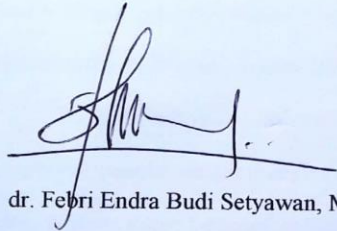 dr. Febri Endra Budi Setyawan, M